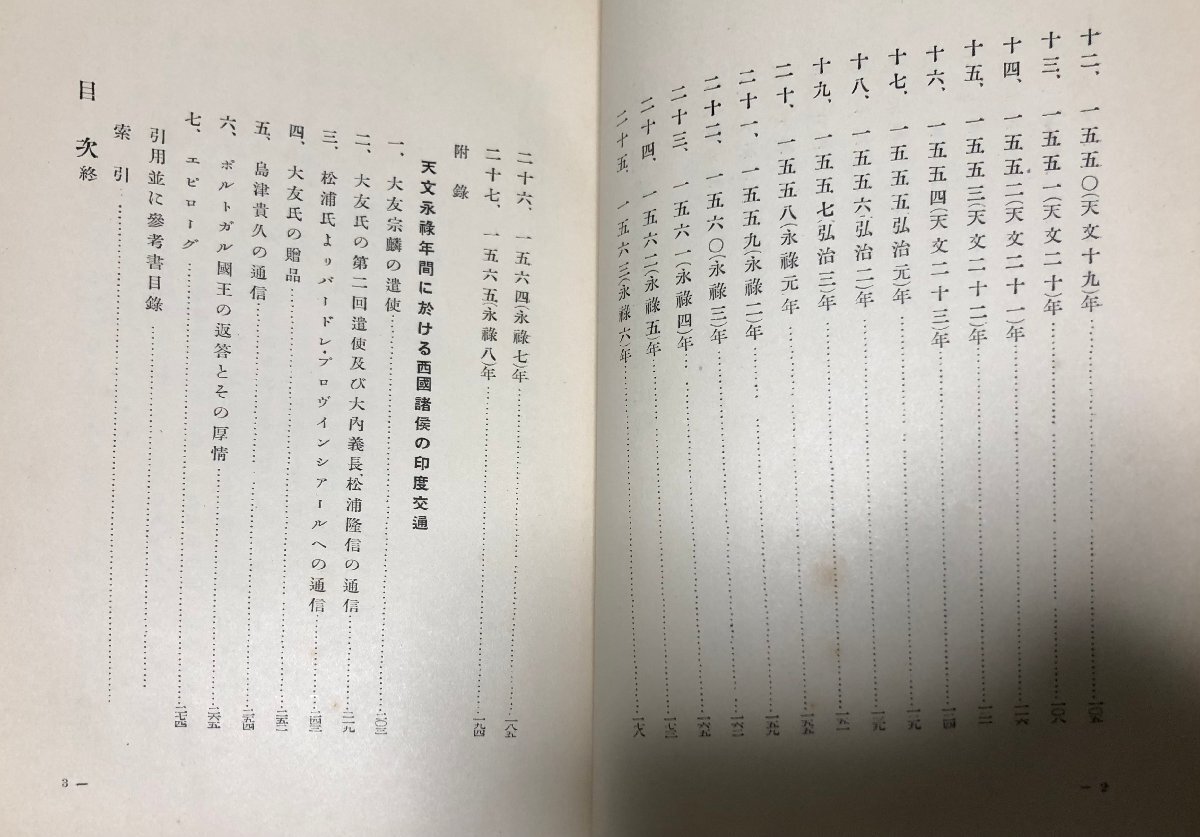 十二、一五五〇(天文十九)年
十三、一五五一(天文二十)年……一〇八
十四、一五五二(天文二十一)年……一一六
十五、一五五三(天文二十二)年
十六、一五五四(天文二十三)年
十七、一五五五(弘治元)年
十八、一五五六(弘治二)年
十九、一五五七(弘治三)年
二十、一五五八(永祿元)年
二十一、一五五九(永祿二)年
二十二、一五六〇(永祿三)年
二十三、一五六一(永祿四)年
二十四、一五六二(永祿五)年
二十五、一五六三(永祿六)年
二十六、一五六四(永祿七)年……一八五
二十七、一五六五(永祿八)年……一九四
附錄
天文永祿年間に於ける西國諸侯の印度交通
一、大友宗麟の遣使……二〇三
二、大友氏の第二回遣使及び大內義長、松浦隆信の通信……二一九
三、松浦氏よりパードレ・プロヴインシアールへの通信……二四三
四、大友氏の贈品……二五二
五、島津貴久の通信……二五四
六、ポルトガル國王の返答とその厚情……二六五
七、エピローグ……二七四
引用並に參考書目錄……
索引……
目次終
3 —